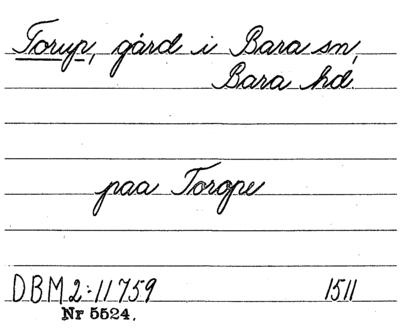 Torup, gård i Bara sn,
Bara hd.
paa Torope
DBM 2:11759 1511
Nr 5524.